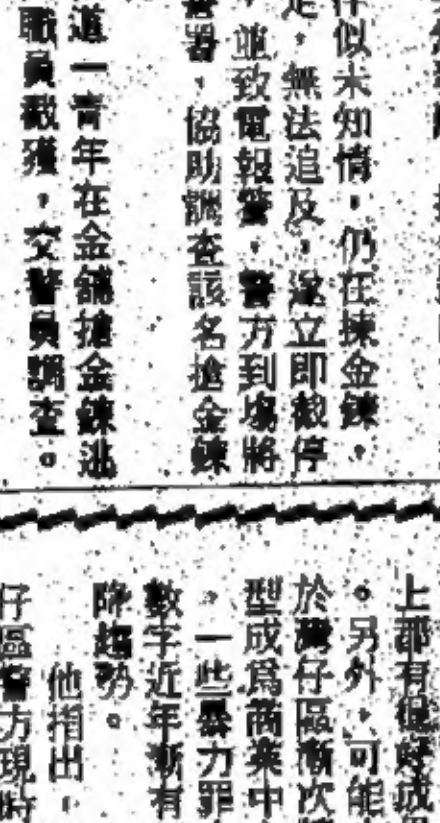 似未知情，仍在揀金鍊。
，無法追及，遂立即截停
，並致電報警，警方到場將
器，協助調查該名搶金鍊
道一青年在金舖搶金鍊逃
職員截獲，交警員調查。
上都有很好成
。另外，可能
於灣仔區漸次
型成為商業中
，一些暴力罪
數字近年漸有
降趨勢。
他指出，
仔區警方現時